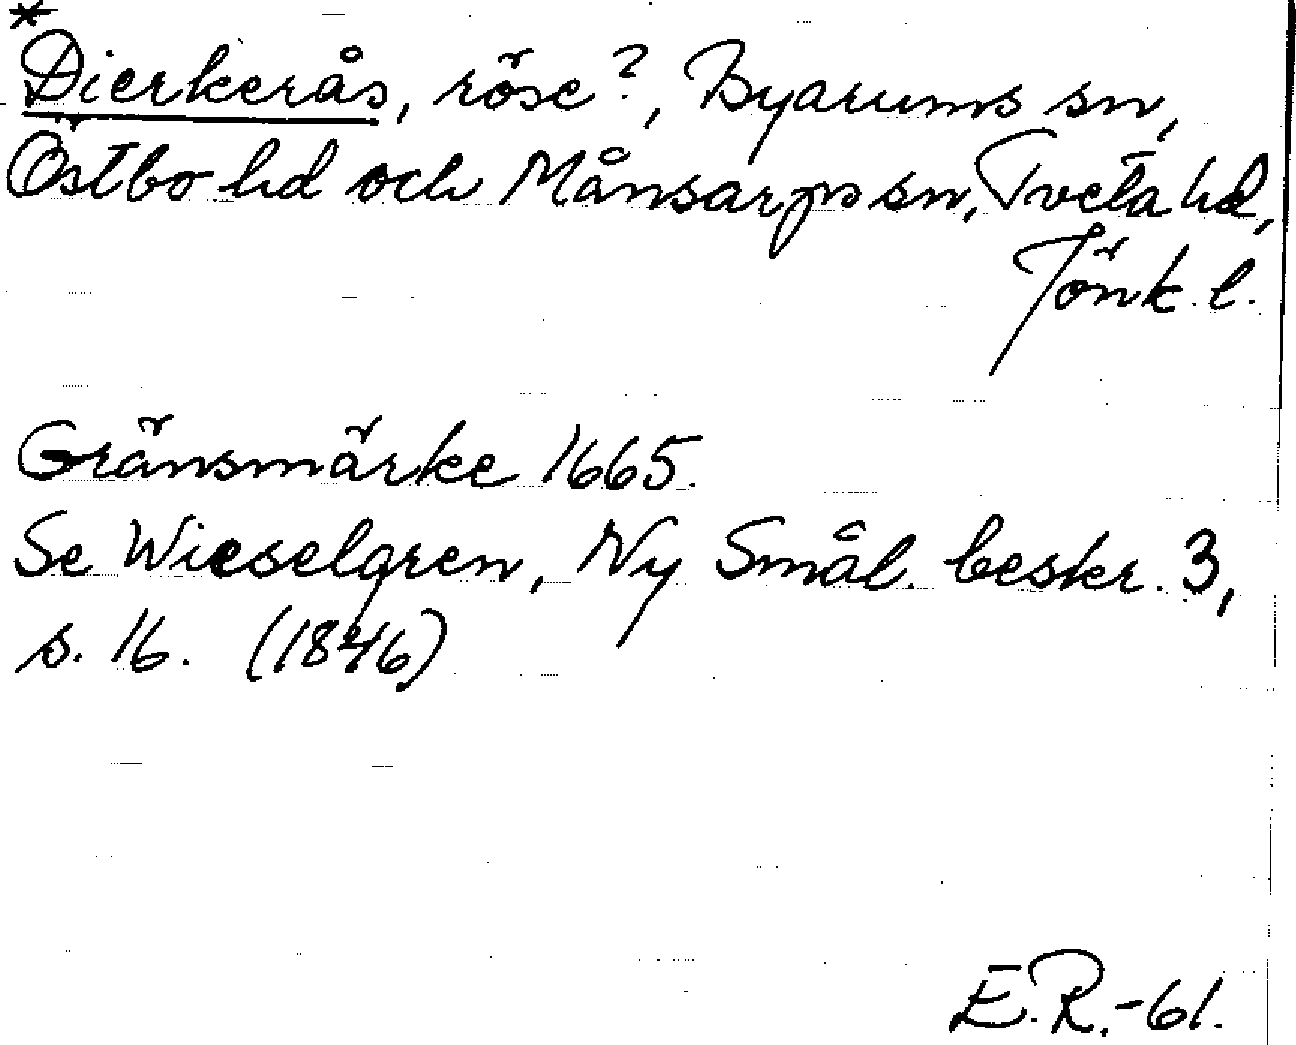 *
Dierkerås, röse?, Byarums sn,
Östbo hd och Månsarps sn, Tveta hd,
Jönk. l.
Gränsmärke 1665.
Se Wieselgren, Ny Smål. beskr. 3,
s. 16. (1846)
E.R.-61.